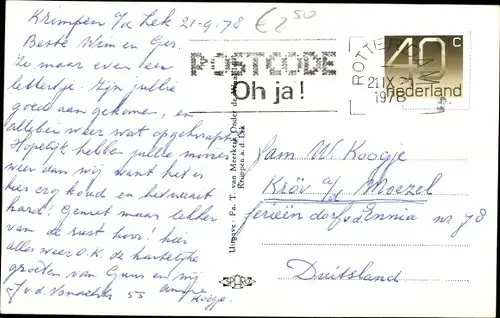 Krimpen a/d Lek 21-9-78
€ 2 50
Beste Wim en Ger.
Zo maar even een
lettertje. Zijn jullie
goed aan gekomen, en
allebei weer wat opgeknapt
Hopelijk hebben jullie mooier
weer dan wij want het is
hier erg koud en het waait
hard! Geniet maar lekker
van de rust hoor! hier
alles weer O.K. de hartelijke
groeten van Guus en mij
J v.d. 55
Kooyje.
POSTCODE
Oh ja!
ROTTERDAM
21 IX
1978
40 c
Nederland
Uitgave: Fa. T. van Meerkerk Onder de Waal
Krimpen a.d. Lek
Fam W. Kooyje
Kröv a/d Moezel
ferieëndorf v.d. Ennia nr 78
Duitsland